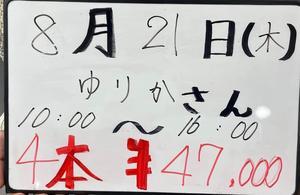 8月21日(木)
ゆりかさん
10:00 〜 16:00
4本 ¥47,000